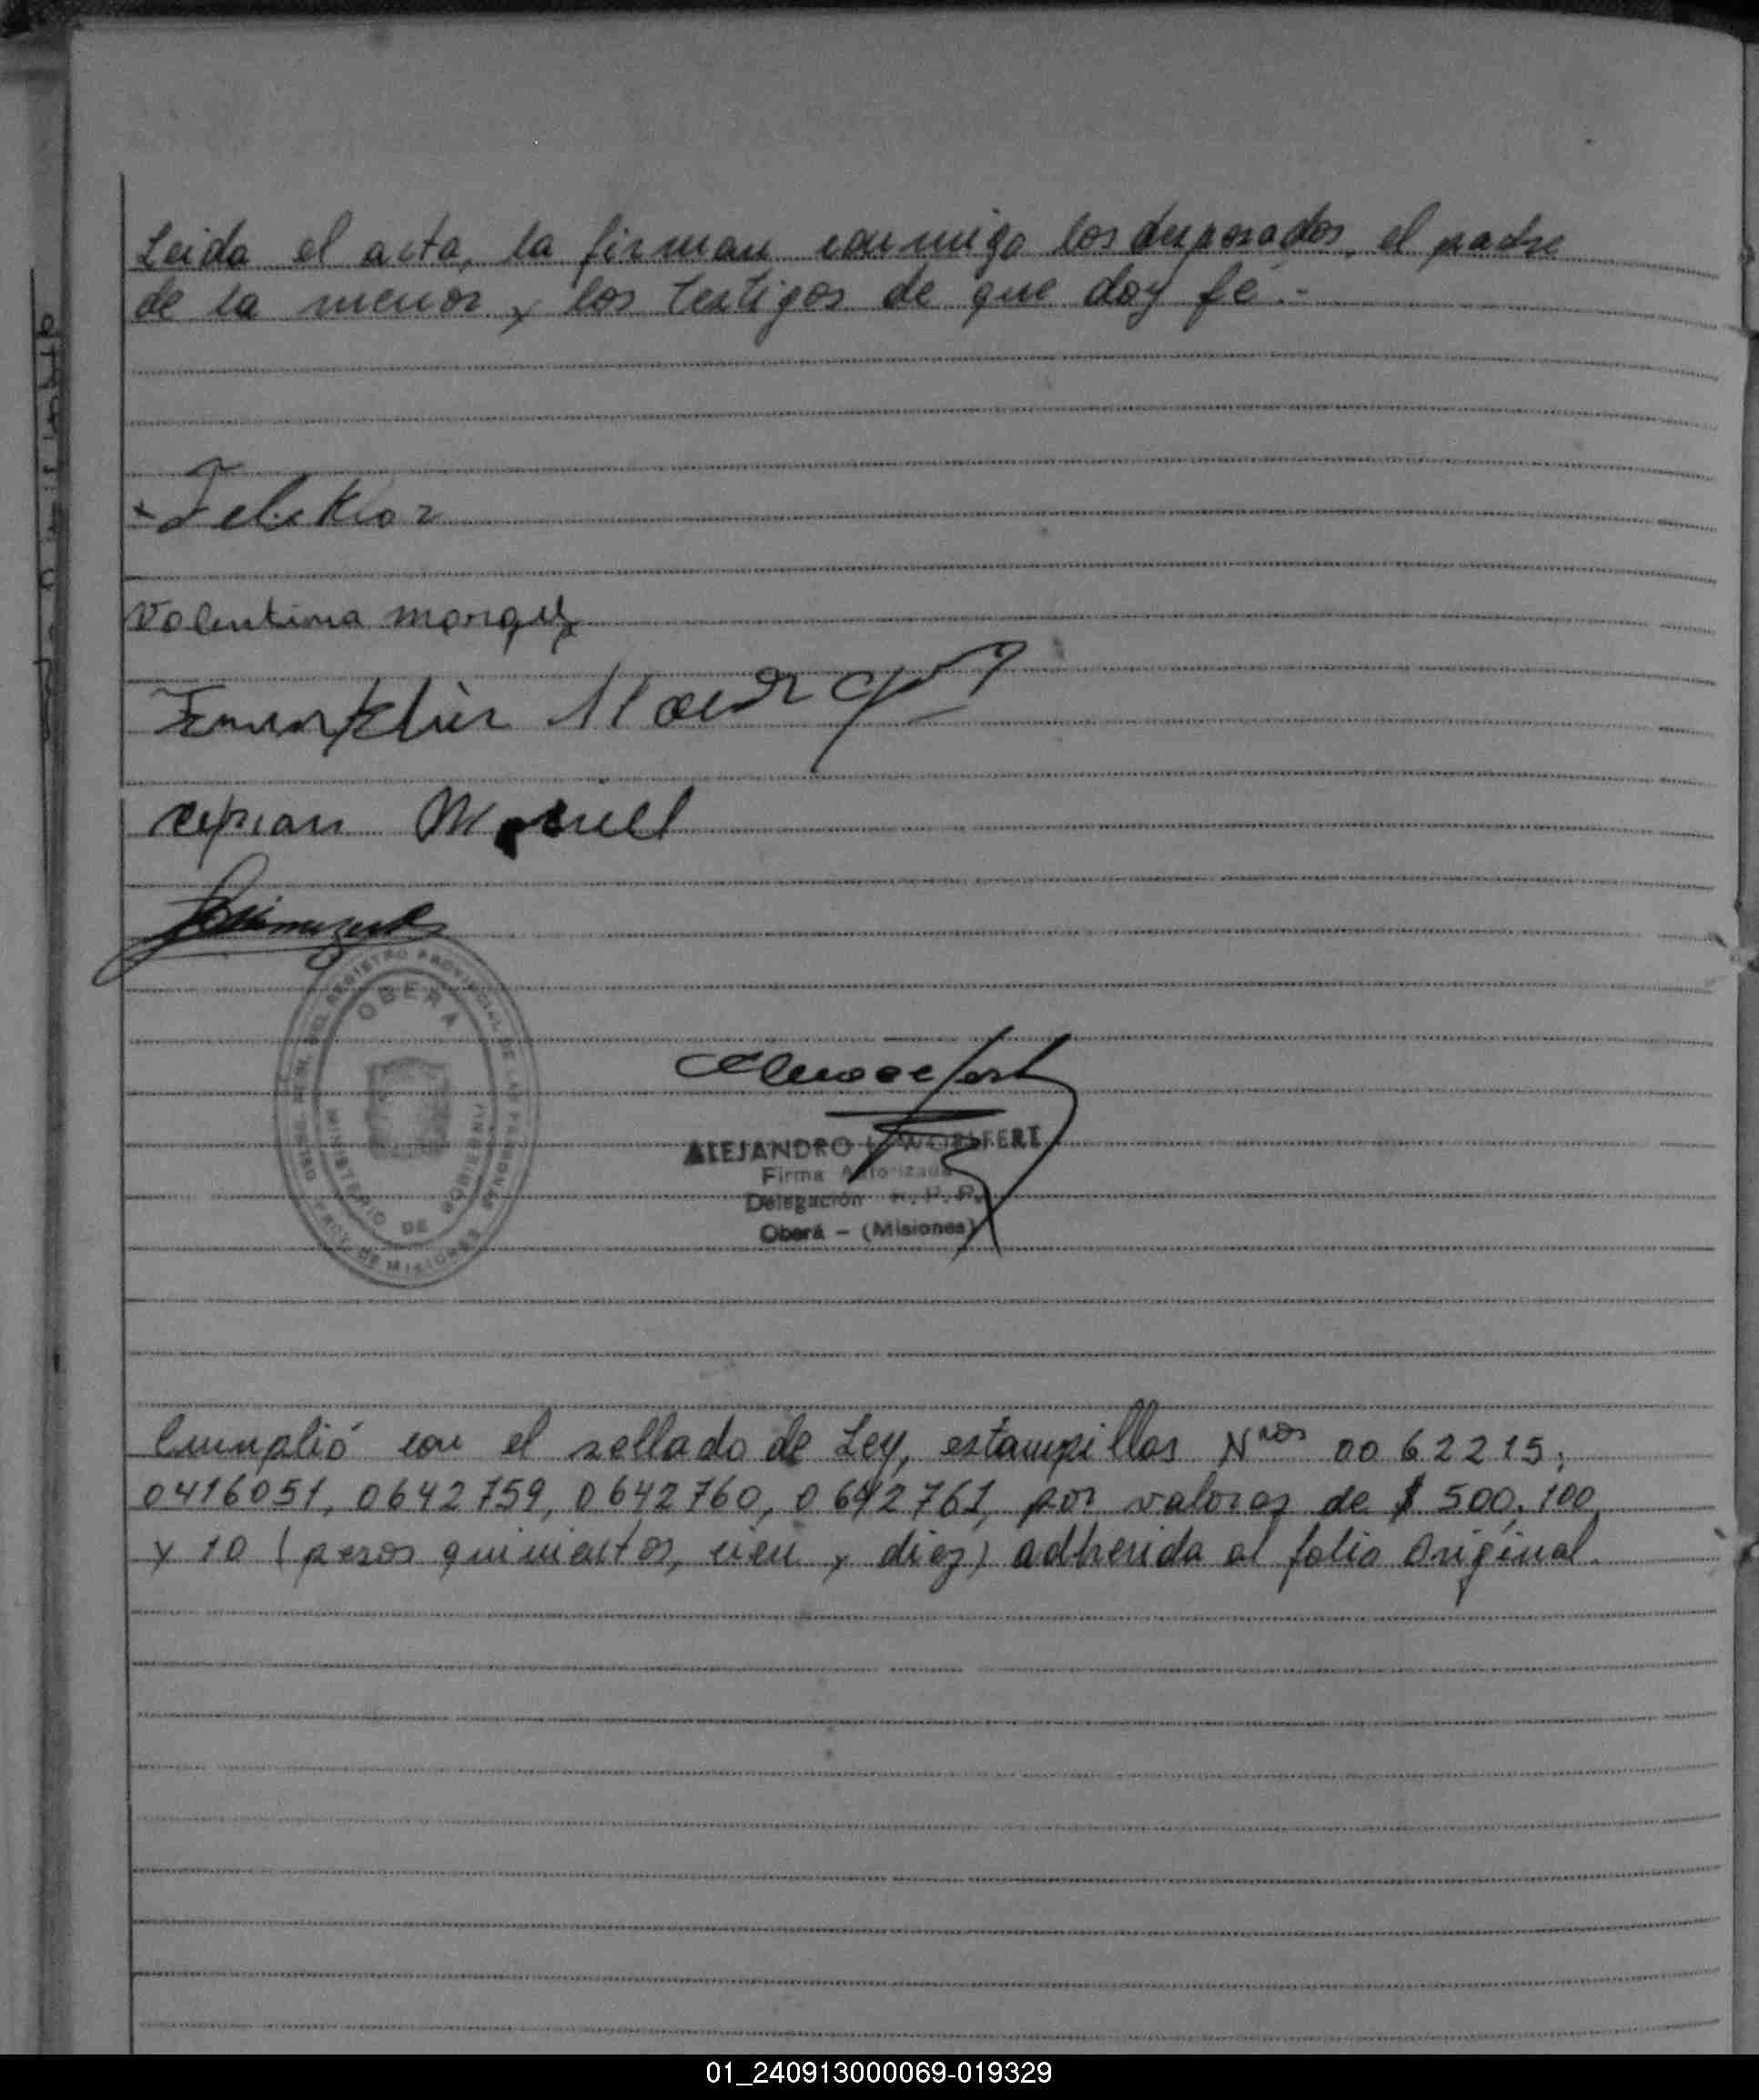 Leida el acta, la firman conmigo los desposados, el padre
de la menor y los testigos de que doy fé.-
Valentina Marquez
Franklin
Ciprian
DEL REGISTRO PROVINCIAL DE LAS PERSONAS
OBERA
MINISTERIO DE GOBIERNO
PROV. DE MISIONES
ALEJANDRO WOELFERT
Firma Autorizada
Delegación R. P. P.
Oberá - (Misiones)
Cumplió con el sellado de Ley, estampillas Nros 0062215,
0416051, 0642759, 0642760, 0642761, por valores de $ 500, 100
y 10 (pesos quinientos, cien y diez) adherida al folio Original.
01_240913000069-019329